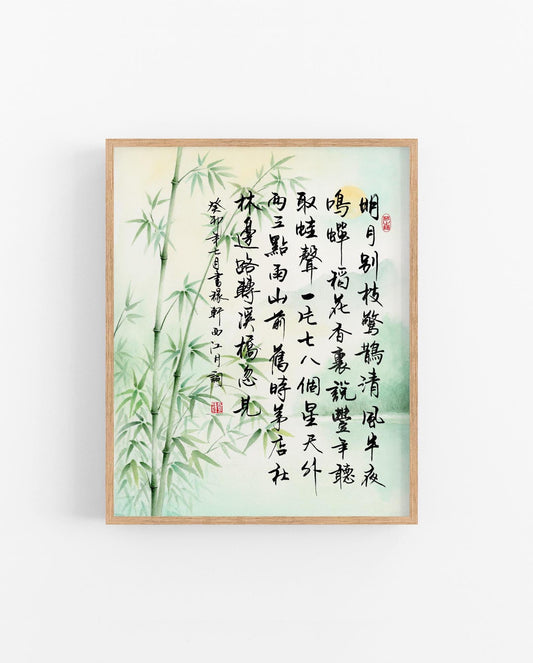 明月别枝驚鵲清風半夜
鳴蟬稻花香裏說豐年聽
取蛙聲一片七八個星天外
兩三點雨山前舊時茅店社
林邊路轉溪橋忽見
癸卯年七月書稼軒西江月詞